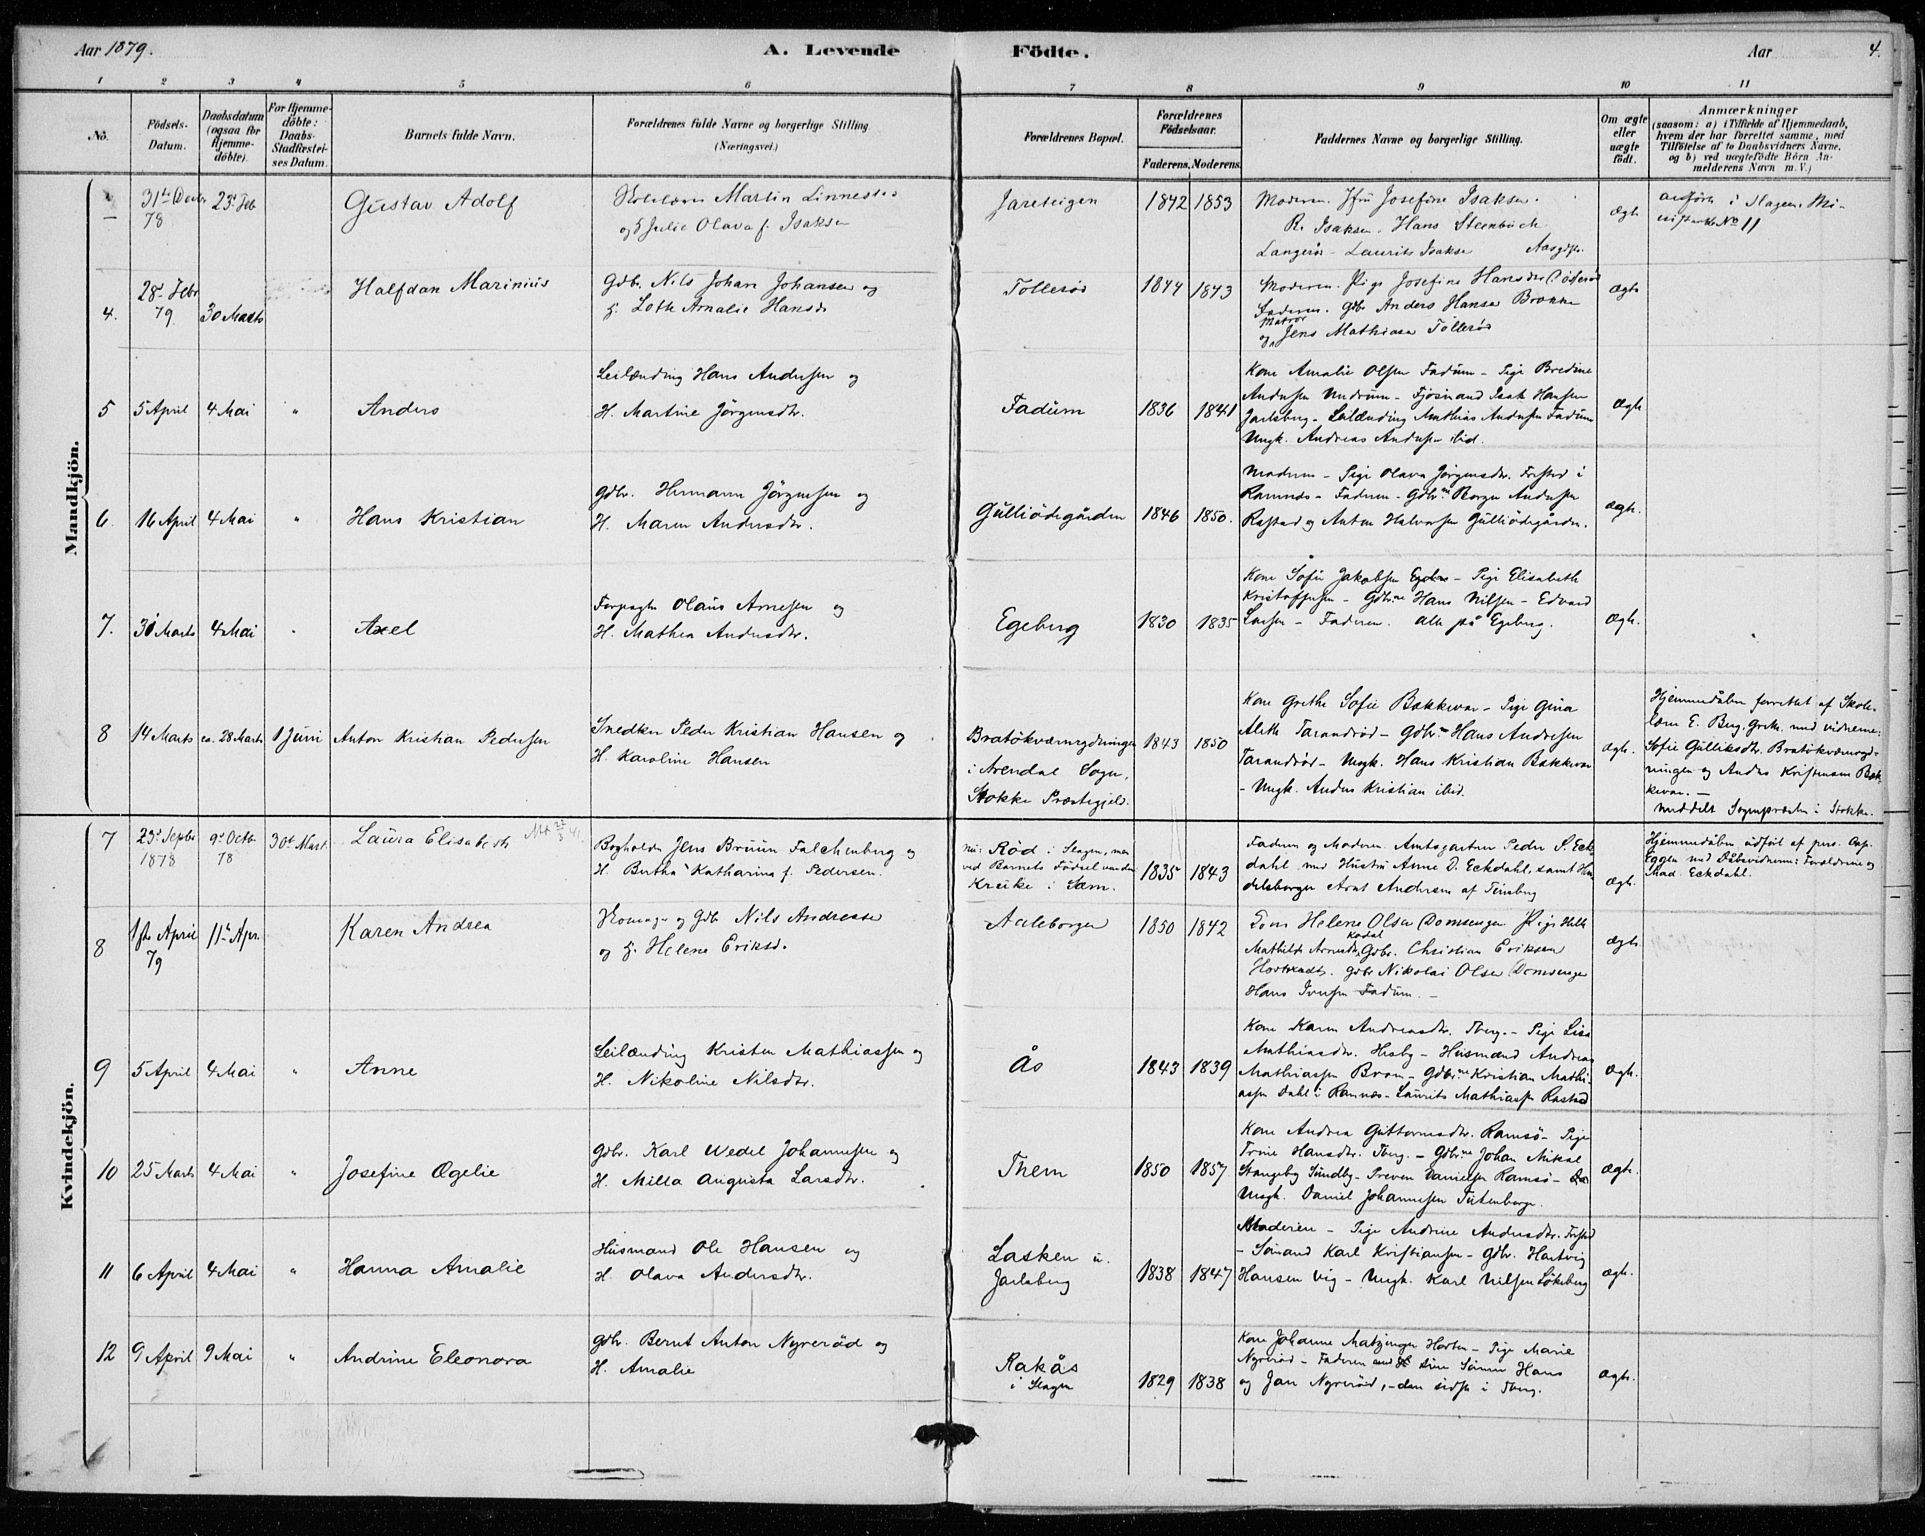 Aar 1879.
A. Levende
Födte.
Aar
4.
1 2 3 4 5 6 7 8 9 10 11
No.
Födsels-
Datum.
Daabsdatum
(ogsaa for
Hjemme-
döbte).
For Hjemme-
döbte:
Daabs-
Stadfæstel-
ses Datum.
Barnets fulde Navn.
Forældrenes fulde Navne og borgerlige Stilling
(Næringsvei.)
Forældrenes Bopæl.
Forældrenes
Födselsaar.
Faderens.
Moderens.
Faddernes Navne og borgerlige Stilling.
Om ægte
eller
uægte
födt.
Anmærkninger
(saasom: a) i Tilfælde af Hjemmedaab,
hvem der har forrettet samme, med
Tilföielse af to Daabsvidners Navne.
og b) ved uægtefödte Börn An-
melderens Navn m. V.)
Mandkjön.
31te Decbr
78
23de Feb
Gustav Adolf
Martin Linnestad
og H. Julie Olava f. Isaksen
Jareteigen
1842
1853
Moderen. Jfru Josefine Isaksen.
R. Isaksen. Hans Steenbuch
Langerör - Laurits Isaksen
ægte
anfört i Slagen Mi-
No 11
4.
28de Febr
79
30 Marts
Halfdan Marinius
Gdbr. Nils Johan Johansen og
H. Lotte Amalie Hansdr
Tolleröd
1844
1843
Moderen. Pige Josefine Hansdr
Faderen. Gdbr Anders Hansen Brokke
Matros
og Jens Mathiasen Tölleröd
ægte
5
5 April
4 Mai
"
Anders
Leilænding Hans Andersen og
H. Martine Jörgensdtr.
Fadum
1836
1841
Kone Amalie Olsen Fadum - Pige Bredine
Andersen Undrum - Fjösmand Isak Hansen
Jarlsberg - Leilænding Mathias Andersen Fadum
Ungk. Andreas Andersen ibid.
Ægte
6.
16 April
4 Mai
"
Hans Kristian
Gdbr. Hermann Jörgensen og
H. Maren Andersdtr.
Gulliödegården
1846
1850.
Moderen - Pige Olava Jörgensdtr. Fristad i
Ramnes - Faderen - Gdbrne Borger Andersen
Rastad og Anton Halvorsen Gulliödegården.
Ægte.
7.
31 Marts
4 Mai
"
Axel
Forpagter Olaus Arnesen og
H. Mathea Andersdtr.
Egeberg
1830
1835
Kone Sofie Jakobsen Egeberg - Pige Elisabeth
Kristoffersen - Gdbrne Hans Nilsen - Edvard
Larsen - Faderen. alle på Egeberg.
Ægte.
8
14 Marts
ca. 28 Marts
1 Juni
Anton Kristian Pedersen
Snedker Peder Kristian Hansen og
H. Karoline Hansen
Bratökværnrydningen
i Arendal Sogn,
Stokke Præstegjeld.
1843
1850
Kone Grethe Sofie Bakkevar - Pige Gina
Alethe Tarandröd - Gdbrne Hans Andresen
Tarandröd - Ungk. Hans Kristian Bakkevar
- Ungk. Anders Kristian ibid.
ægte.
Hjemmedåben forrettet af Skole-
lærer E. Berg, Greth. med vidnerne:
Sofie Gulliksdtr. Bratökværnryd-
ningen og Anders Kristensen Bak-
kevar. -
Meddelt Sognepræsten i Stokke.
Kvindekjön.
7
23de Septbr
1878
9de Octb
78
30te Mart.
Laura Elisabeth
Bogholder Jens Bruun Falchenberg og
H. Bertha Katharina f. Pedersen.
nu: Röd i Slagen, men
ved Barnets Födsel vare de
Kreike i Sæm.
1835
1843
Faderen og Moderen. Amtsgartner Peder S. Eck-
dahl med Hustru Anne D. Eckdahl, samt Han-
delsborger Arnt Andersen af Tönsberg
ægte.
Hjemmedåben udfört af pers. Cap.
Eggen med Dåbsvidnerne: Forældrene og
Mad. Eckdahl.
8
1ste April
79
11te Apr.
Karen Andrea
og Gdbr Nils Andresen
og H. Helene Eriksdr.
Aaleborgen
1850
1842
Kone Helene Olsen Domsengen Pige Helle
Mathilde Arnesdtr Kodal Gdbr. Christian Eriksen
Gdbr Nikolai Olsen Domsengen
Hans Iversen Fadum. -
ægte
9
5 April
4 Mai
"
Anne
Leilænding Kristen Mathiassen og
H. Nikoline Nilsdtr.
Ås
1843
1839
Kone Karen Andreasdtr. Tberg. - Pige Lisa
Mathiasdtr. Hesby - Husmand Andreas
Mathiassen Bron - Gdbrne Kristian Mathi-
assen Dahl i Ramnæs - Laurits Mathiassen Rastad
ægte.
10
25 Marts
4 Mai
"
Josefine Ægelie
Gdbr. Karl Wedel Johannesen og
H. Milla Augusta Larsdtr.
Them
1850
1857
Kone Andrea Guttormsdtr. Ramsö - Pige
Trine Hansdtr. Tberg. - Gdbrne Johan Mikal
Stangeby Sundby - Preven Danielsen Ramsö -
Ungk. Daniel Johannesen Tutenberg.
ægte.
11
6 April
4 Mai
"
Hanna Amalie
Husmand Ole Hansen og
H. Olava Andersdtr.
Lasken u.
Jarlsberg
1838
1847
Moderen - Pige Andrine Andersdtr. Fristad
- Sömand Karl Kristiansen - Gdbr. Hartvig
Hansen Vig - Ungk. Karl Nilsen Lökeberg
ægte.
12
9 April
9 Mai
"
Andrine Eleonora
Gdbr. Bernt Anton Nyreröd og
H. Amalie
Rakås
i Slagen
1829
1838
Kone Johanne Matzinger Horten - Pige Marie
Nyreröd - Faderen med sine Sönner Hans
og Jan Nyreröd, - den sidste i Tberg.
ægte.